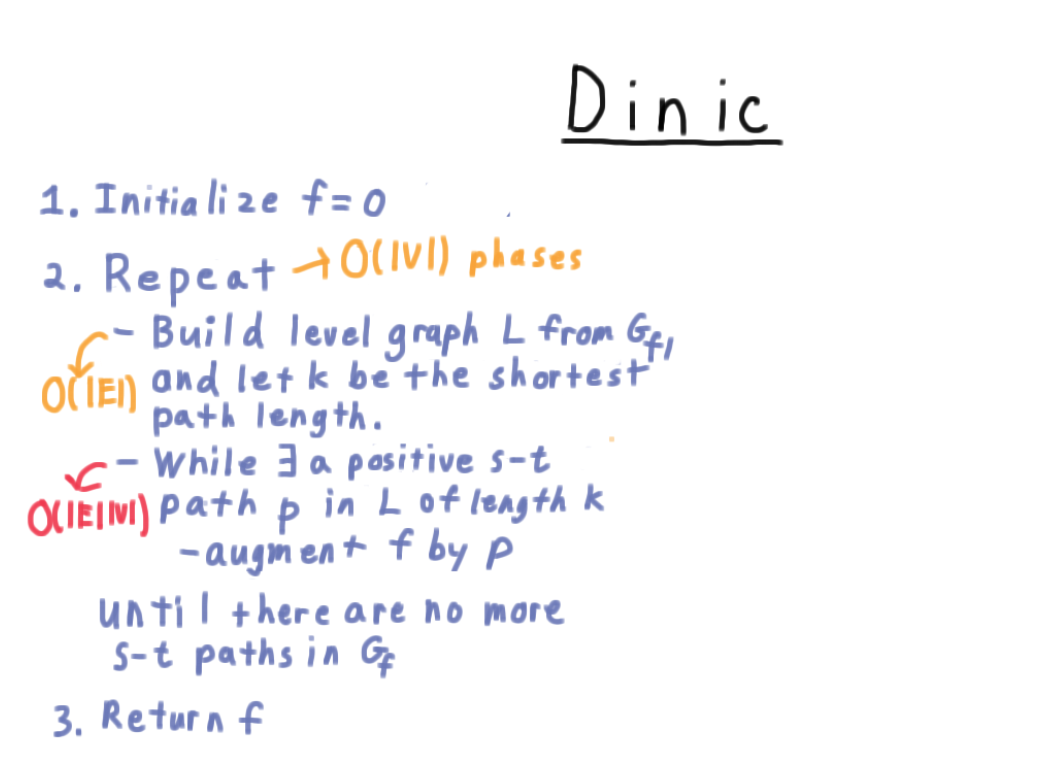 Dinic
1. Initialize f=0
2. Repeat → O(|V|) phases
- Build level graph L from G_f,
O(|E|) and let k be the shortest
path length.
- While ∃ a positive s-t
O(|E||V|) path p in L of length k
- augment f by p
until there are no more
s-t paths in G_f
3. Return f